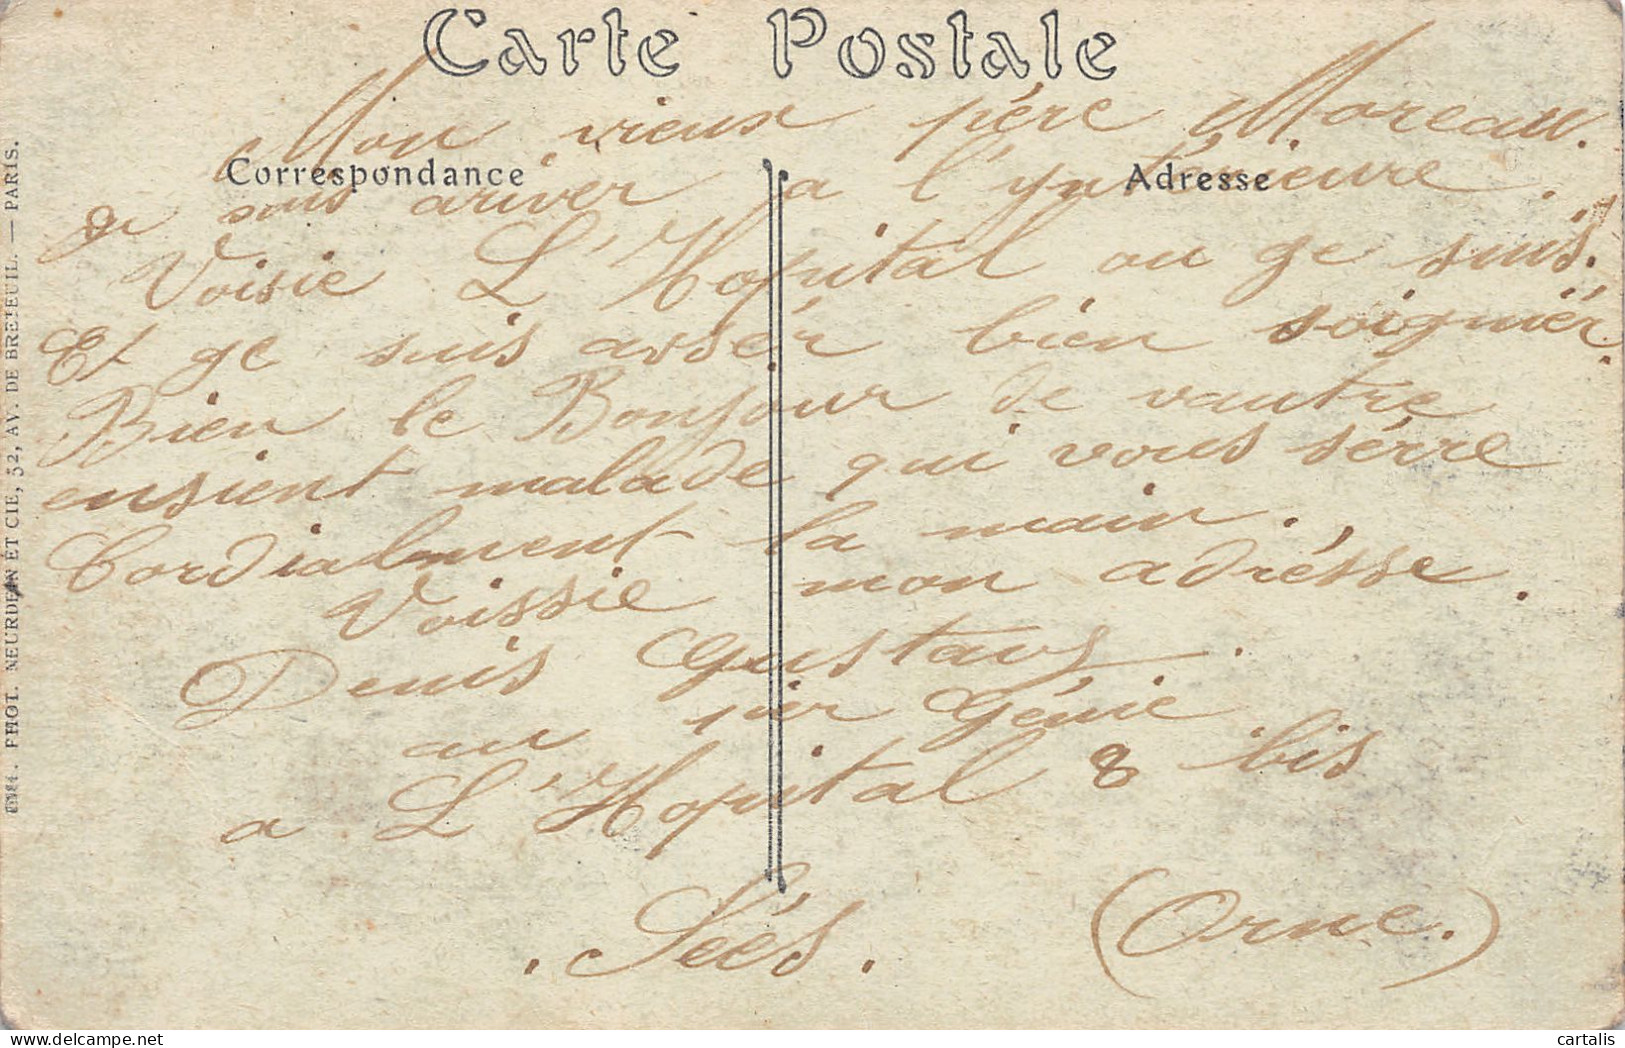 Carte Postale
Mon vieux père Moreau.
Correspondance
Adresse
ge suis ariver a l'yntérieure.
Voisie L'Hopital ou ge suis.
Et ge suis assér bien soigniér.
Bien le Bonjour de vautre
ensient malade qui vous sérre
Cordialment la main.
Voissie mon adrésse.
Denis Gustave.
au 1ier Génie
a L'Hopital 8 bis
. Sées. (Orne.)
PHOT. NEURDEIN ET CIE, 52, AV. DE BRETEUIL. — PARIS.
cartalis